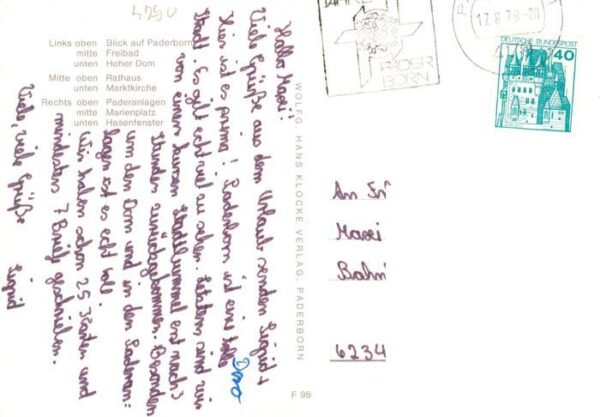 4790
Links oben Blick auf Paderborn
mitte Freibad
unten Hoher Dom
Mitte oben Rathaus
unten Marktkirche
Rechts oben Paderanlagen
mitte Marienplatz
unten Hasenfenster
WOLFG. HANS KLOCKE VERLAG, PADERBORN
F 98
Hallo Maxi!
Viele Grüße aus dem Urlaub senden Sigrid +
Hier ist es prima! Paderborn ist eine tolle
Stadt. Es gibt echt viel zu sehen. Letztens sind wir
von einem kurzen Stadtbummel erst nach 3
Stunden zurückgekommen. Besonders
um den Dom und in den Paderan=
lagen ist es echt toll.
Wir haben schon 25 Karten und
mindestens 7 Briefe geschrieben.
Viele, viele Grüße
Sigrid
PADER
BORN
17.8.78-20
DEUTSCHE BUNDESPOST
40
An Frl
Maxi
Bahn
6234